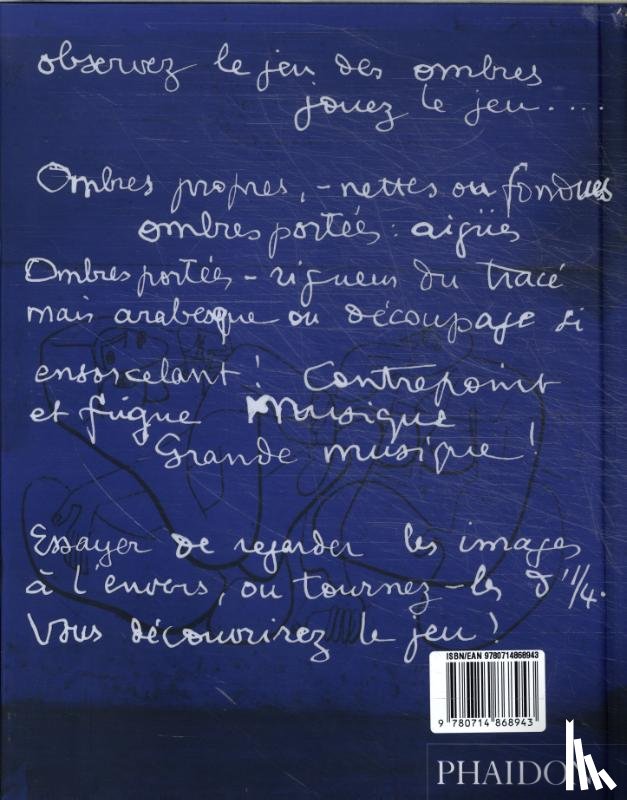 observez le jeu des ombres
jouez le jeu....
Ombres propres, - nettes ou fondues
ombres portées: aigües
Ombres portées - rigueur du tracé
mais arabesque ou découpage si
ensorcelant! Contrepoint
et fugue Musique
Grande musique!
Essayer de regarder les images
à l'envers, ou tournez-les d'1/4.
Vous découvrirez le jeu!
ISBN/EAN 9780714868943
9 780714 868943
PHAIDON